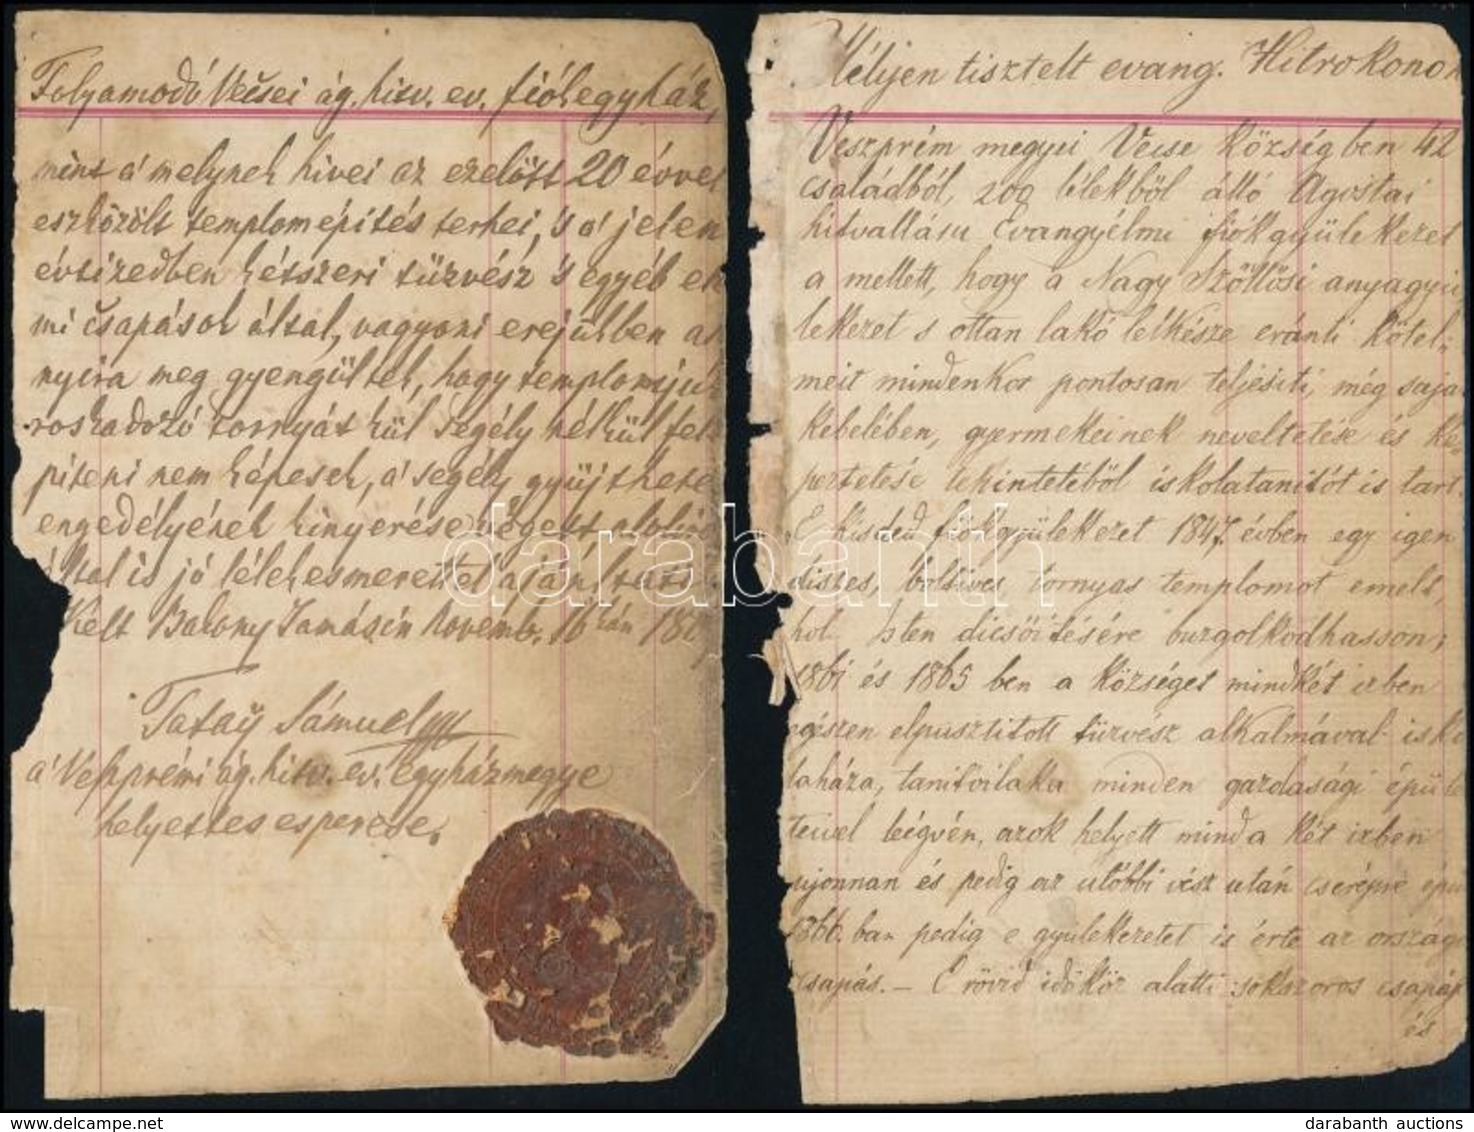 Folyamodó Vecsei ág. hitv. ev. fiókegyház,
mint a' melynek hivei az ezelőtt 20 évvel
eszközölt templomépités terhei, 's a' jelen
évtizedben kétszeri tűzvész 's egyéb el
mi csapások által, vagyoni erejükben an
nyira meg gyengültek, hogy templomjuk
roskadozó tornyát kül segély nélkül fel
piteni nem képesek, a' segély gyűjthete
engedélyének kinyerése végett, alulirt
által is jó lélekismerettel ajánltatik.
Kelt Bakony Tamásin Novemb. 16kán 186
Tatay Sámuel
a' Veszprémi ág. hitv. ev. egyházmegye
helyettes esperese.
Mélyen tisztelt evang. Hitrokonok
Veszprém megyei Vecse községben 42
családból, 200 lélekből álló Ágostai
hitvallásu Evangyélmi fiókgyülekezet
a mellett, hogy a Nagy Szőllősi anyagyü
lekezet s ottan lakó lelkésze eránti kötel-
meit mindenkor pontosan teljesiti, még saját
kebelében, gyermekeinek neveltetése és ké-
peztetése tekintetéből iskolatanitót is tart.
E kisded fiókgyülekezet 1847. évben egy igen
diszes, boltives tornyas templomot emelt,
hol Isten dicsőitésére buzgolkodhasson;
1861 és 1865 ben a községet mindkét izben
egészen elpusztitott tűzvész alkalmával isko
laháza, tanitóilaka minden gazdasági épüle
teivel leégvén, azok helyett mind a két izben
ujonnan és pedig az utóbbi vész után cserépre épü
1866. ban pedig e gyülekezetet is érte az országos
csapás. – E rövid időkör alatti sokszoros csapás
és
darabanth
darabanth auctions